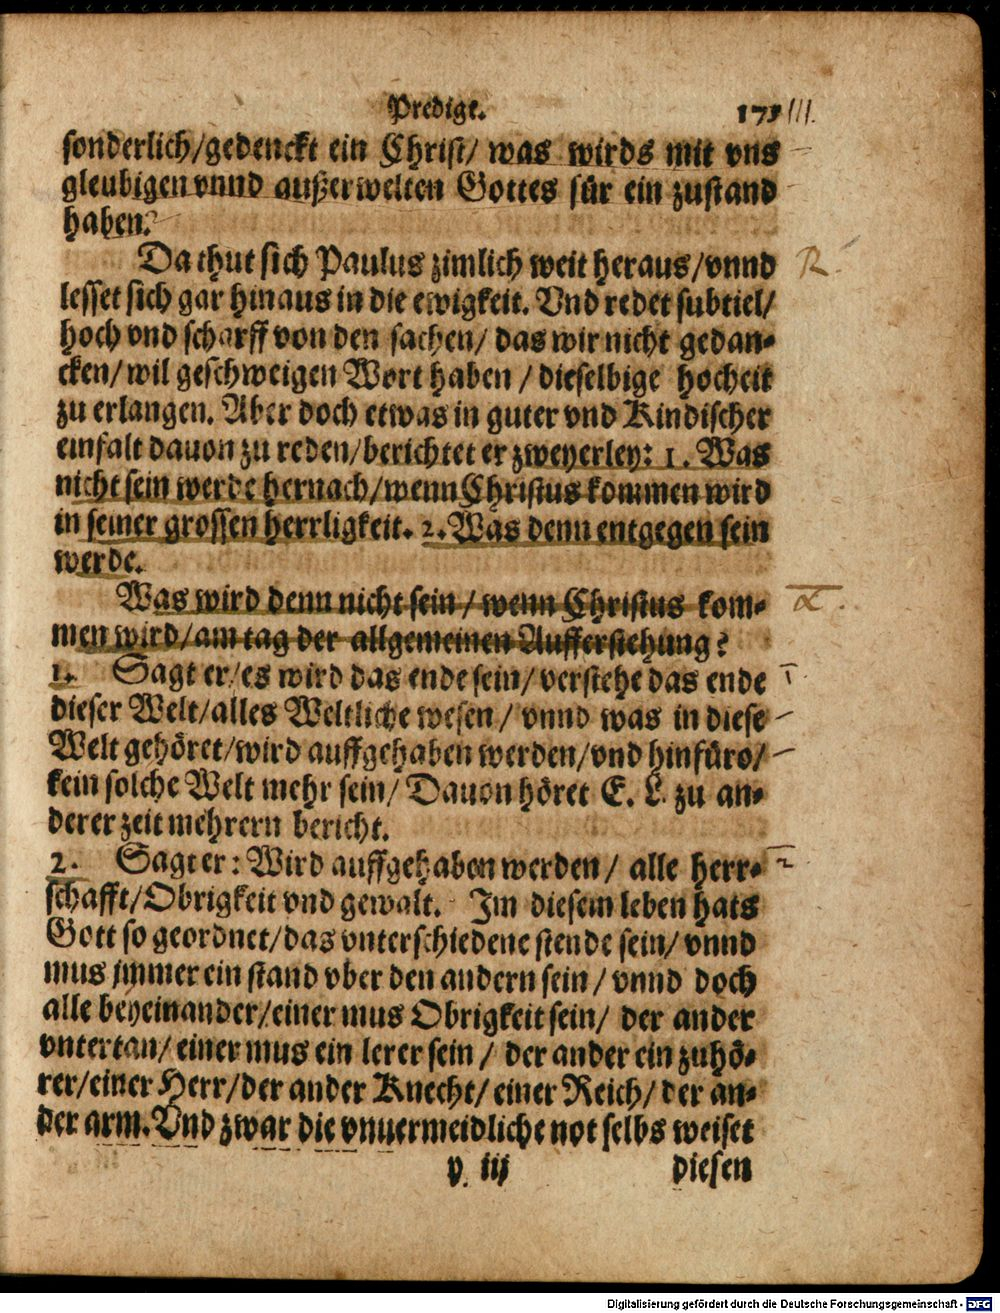 Predigt. 171
sonderlich/gedenckt ein Christ/ was wirds mit vns
gleubigen vnnd außerwelten Gottes für ein zustand
haben?
Da thut sich Paulus zimlich weit heraus/vnnd
lesset sich gar hinaus in die ewigkeit. Vnd redet subtiel/
hoch vnd scharff von den sachen/ das wir nicht gedan-
cken/wil geschweigen Wort haben / dieselbige hocheit
zu erlangen. Aber doch etwas in guter vnd Kindischer
einfalt dauon zu reden/berichtet er zweyerley: 1. Was
nicht sein werde hernach/wenn Christus kommen wird
in seiner grossen herrligkeit. 2. Was denn entgegen sein
werde.
Was wird denn nicht sein / wenn Christus kom-
men wird/am tag der allgemeinen Aufferstehung?
1. Sagt er/es wird das ende sein/ verstehe das ende
dieser Welt/alles Weltliche wesen / vnnd was in diese
Welt gehöret/wird auffgehaben werden/vnd hinfüro/
kein solche Welt mehr sein/ Dauon höret E. L. zu an-
derer zeit mehrern bericht.
2. Sagt er: Wird auffgehaben werden / alle herr-
schafft/Obrigkeit vnd gewalt. Im diesem leben hats
Gott so geordnet/das vnterschiedene stende sein/ vnnd
mus jmmer ein stand vber den andern sein / vnnd doch
alle beyeinander/einer mus Obrigkeit sein/ der ander
vntertan/ einer mus ein lerer sein / der ander ein zuhö-
rer/einer Herr/der ander Knecht/ einer Reich/ der an-
der arm. Vnd zwar die vnuermeidliche not selbs weiset
p iij diesen
Digitalisierung gefördert durch die Deutsche Forschungsgemeinschaft - DFG